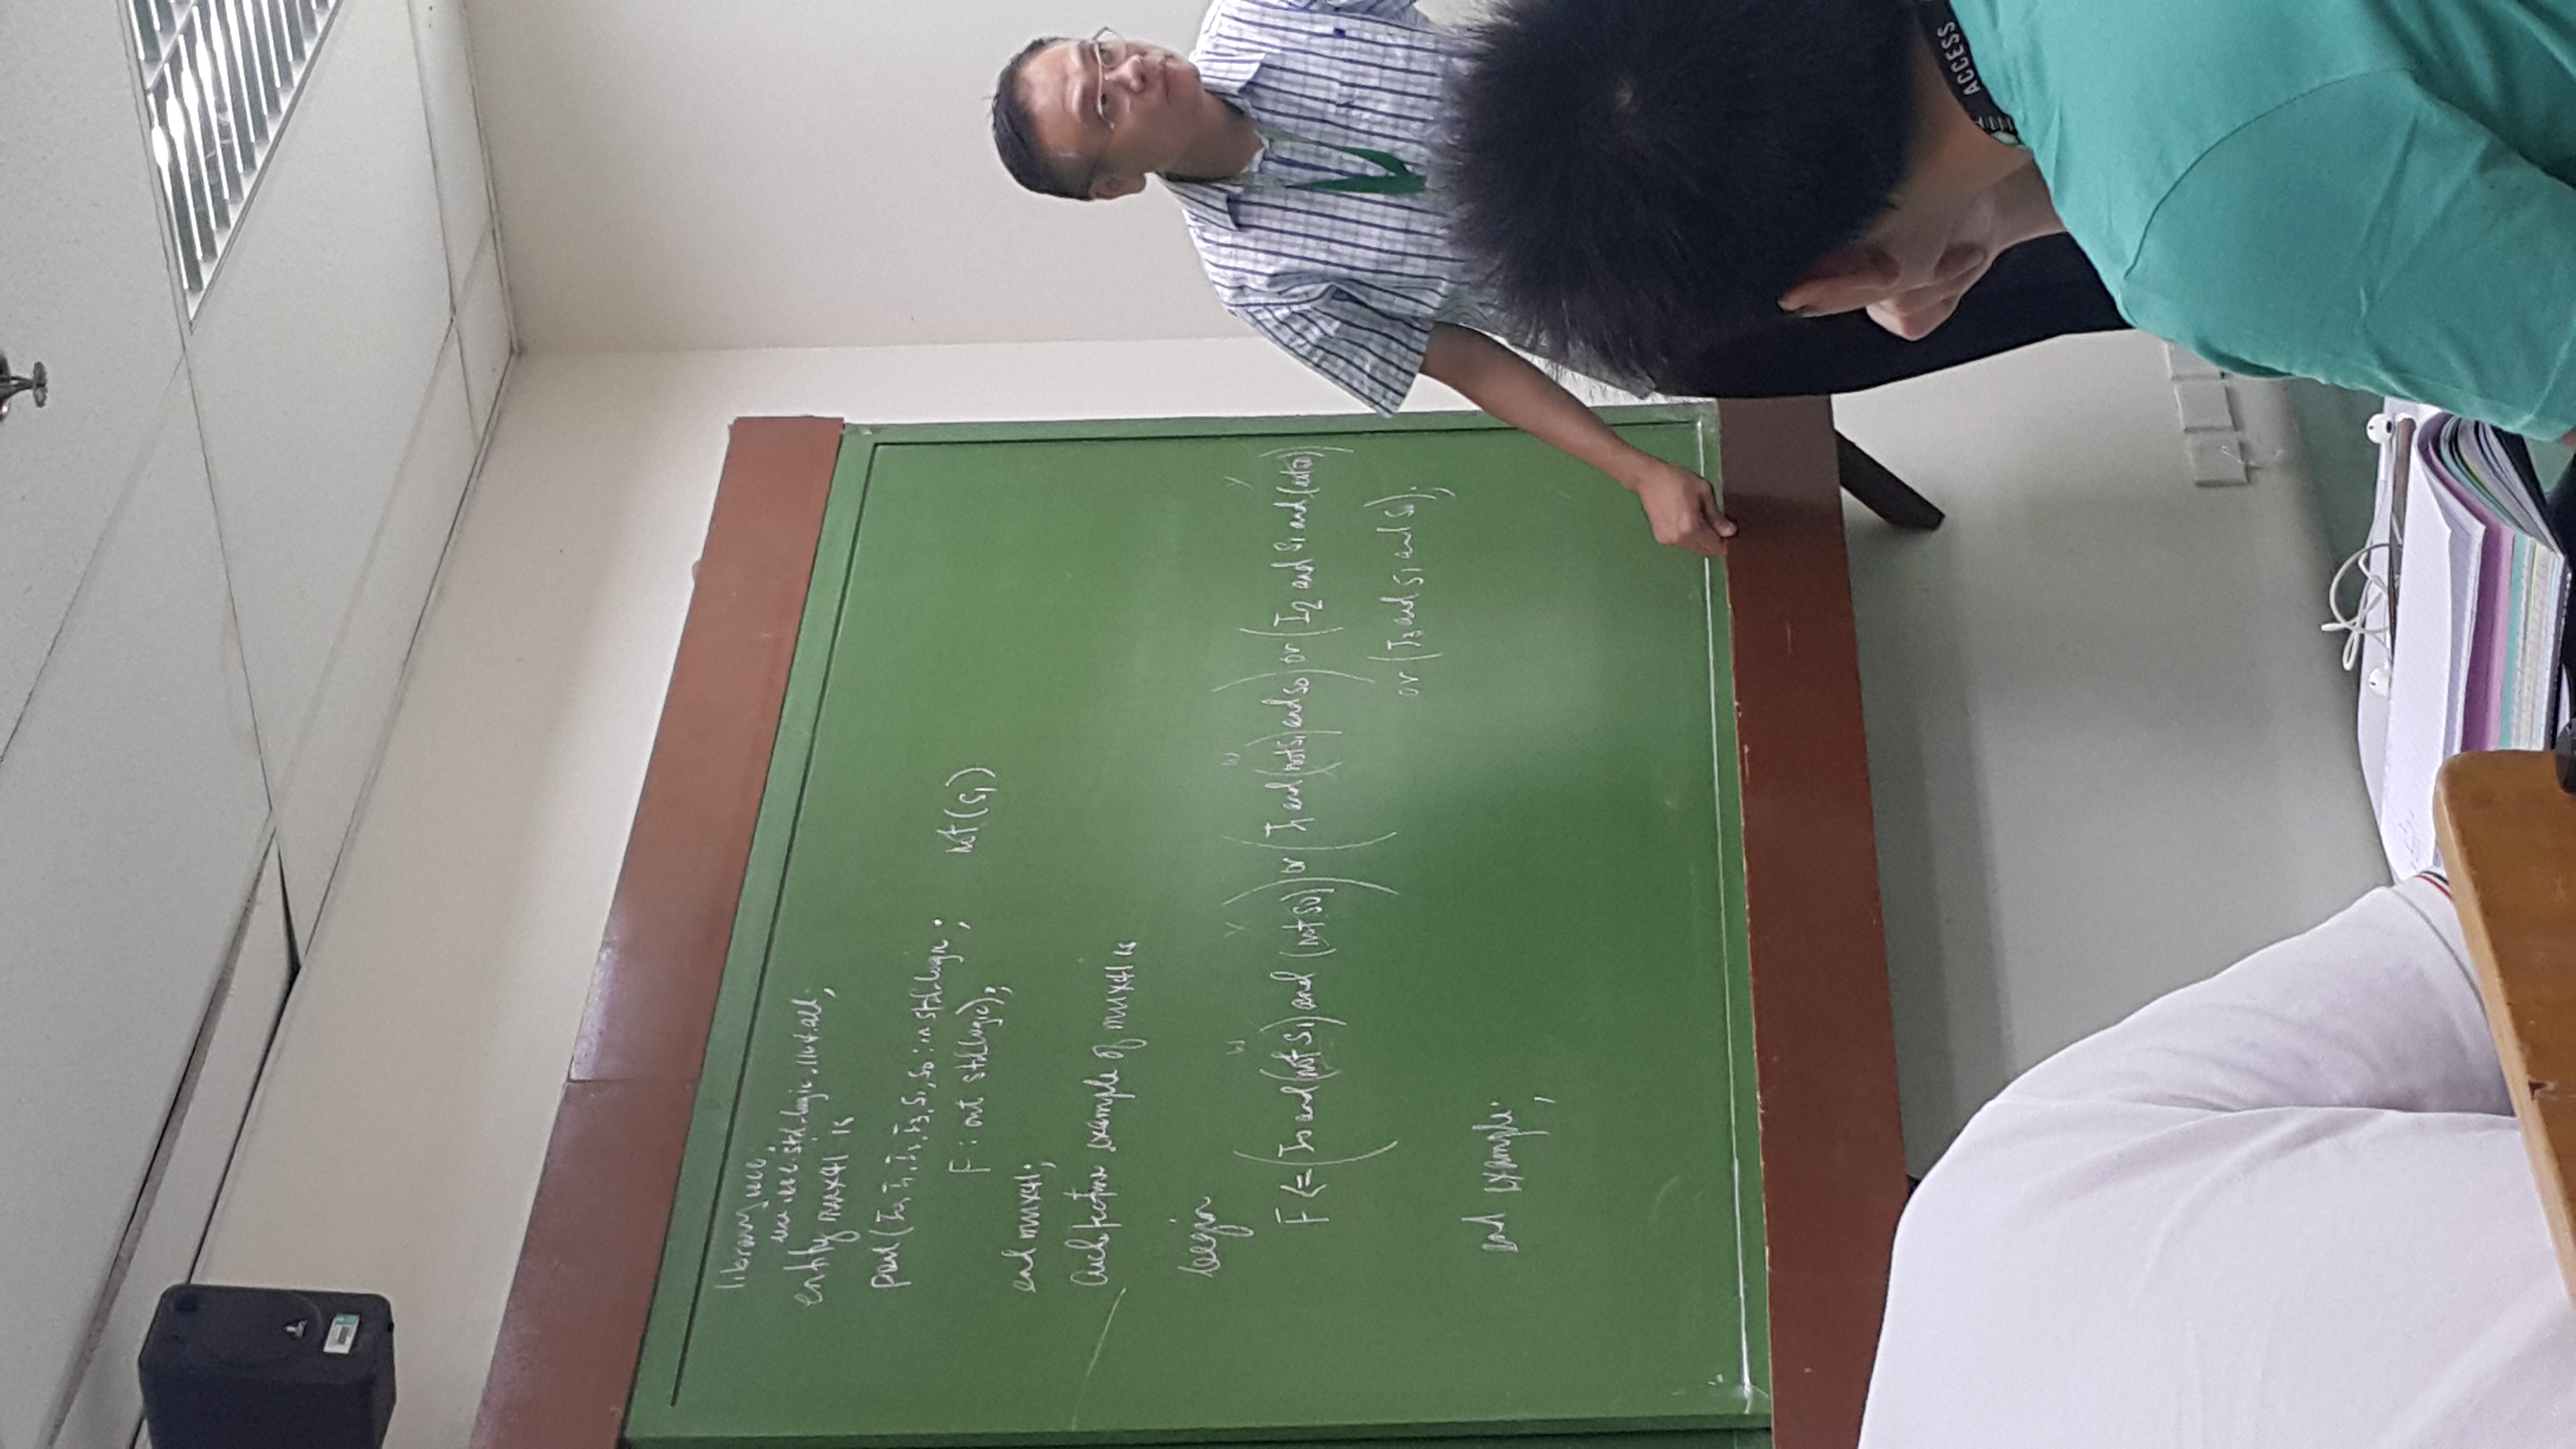 library ieee;
use ieee.std_logic_1164.all;
entity mux41 is
port(I0, I1, I2, I3, S1, S0 : in std_logic;
F : out std_logic);
not(S1)
end mux41;
architecture example of mux41 is
begin
W Y W Y
F <= (I0 and (not S1) and (not S0)) or (I1 and (not S1) and S0) or (I2 and S1 and (not S0))
or (I3 and S1 and S0);
end example;
ACCESS